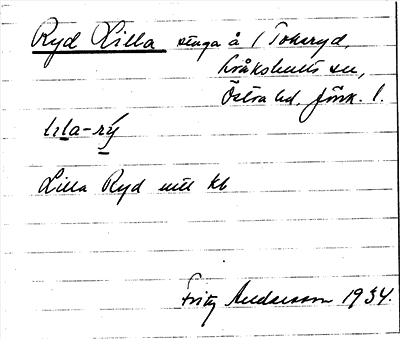 Ryd Lilla stuga å 1 Tokaryd,
Kråkshults sn,
Östra hd. Jönk. l.
lıla-rý
Lilla Ryd utl kb
Fritz Andersson 1934.